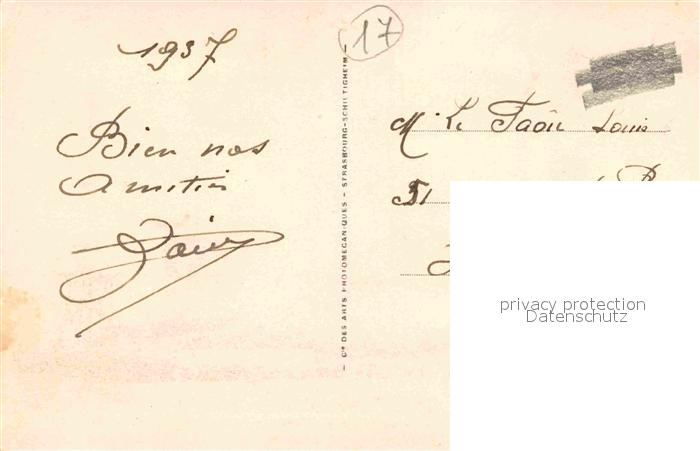 17
1937
Bien nos
Amitiés
Cie DES ARTS PHOTOMECANIQUES - STRASBOURG-SCHILTIGHEIM -
M. Le Louis
51
privacy protection
Datenschutz